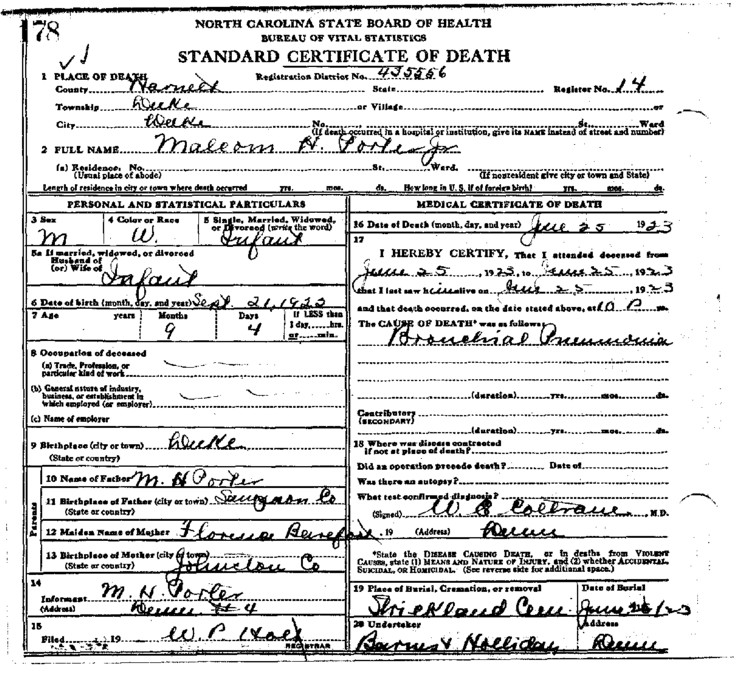 178
NORTH CAROLINA STATE BOARD OF HEALTH
BUREAU OF VITAL STATISTICS
STANDARD CERTIFICATE OF DEATH
1 PLACE OF DEATH Registration District No. 435556
County Harnett State Register No. 14
Township Duke or Village or
City Duke No. St. Ward
(If death occurred in a hospital or institution, give its NAME instead of street and number)
2 FULL NAME Malcom H. Porter Jr
(a) Residence: No. St., Ward.
(Usual place of abode) (If nonresident give city or town and State)
Length of residence in city or town where death occurred yrs. mos. ds. How long in U. S. if of foreign birth? yrs. mos. ds.
PERSONAL AND STATISTICAL PARTICULARS
3 Sex 4 Color or Race 5 Single, Married, Widowed, or Divorced (write the word)
M W. Infant
5a If married, widowed, or divorced
Husband of
(or) Wife of Infant
6 Date of birth (month, day, and year) Sept. 21, 1922
7 Age years Months Days If LESS than
9 4 1 day, hrs.
or min.
8 Occupation of deceased
(a) Trade, Profession, or
particular kind of work
(b) General nature of industry,
business, or establishment in
which employed (or employer)
(c) Name of employer
9 Birthplace (city or town) Duke
(State or country)
Parents
10 Name of Father M. H Porter
11 Birthplace of Father (city or town) Sampson Co
(State or country)
12 Maiden Name of Mother Florence Barefoot
13 Birthplace of Mother (city or town)
(State or country) Johnston Co
14
Informant M. H. Porter
(Address) Dunn # 4
15
Filed 19 W. P Holt
REGISTRAR
MEDICAL CERTIFICATE OF DEATH
16 Date of Death (month, day, and year) June 25 1923
17
I HEREBY CERTIFY, That I attended deceased from
June 25, 1923, to June 25, 1923
that I last saw h alive on June 25, 1923
and that death occurred, on the date stated above, at 10 P m.
The CAUSE OF DEATH* was as follows:
Bronchial Pneumonia
(duration) yrs. mos. ds.
Contributory
(SECONDARY)
(duration) yrs. mos. ds.
18 Where was disease contracted
if not at place of death?
Did an operation precede death? Date of
Was there an autopsy?
What test confirmed diagnosis?
(Signed) W. E Coltrane, M.D.
, 19 (Address) Dunn
*State the DISEASE CAUSING DEATH, or in deaths from VIOLENT
CAUSES, state (1) MEANS AND NATURE OF INJURY, and (2) whether ACCIDENTAL,
SUICIDAL, OR HOMICIDAL. (See reverse side for additional space.)
19 Place of Burial, Cremation, or removal Date of Burial
Strickland Cem. June 26/23
20 Undertaker Address
Barnes & Holliday Dunn